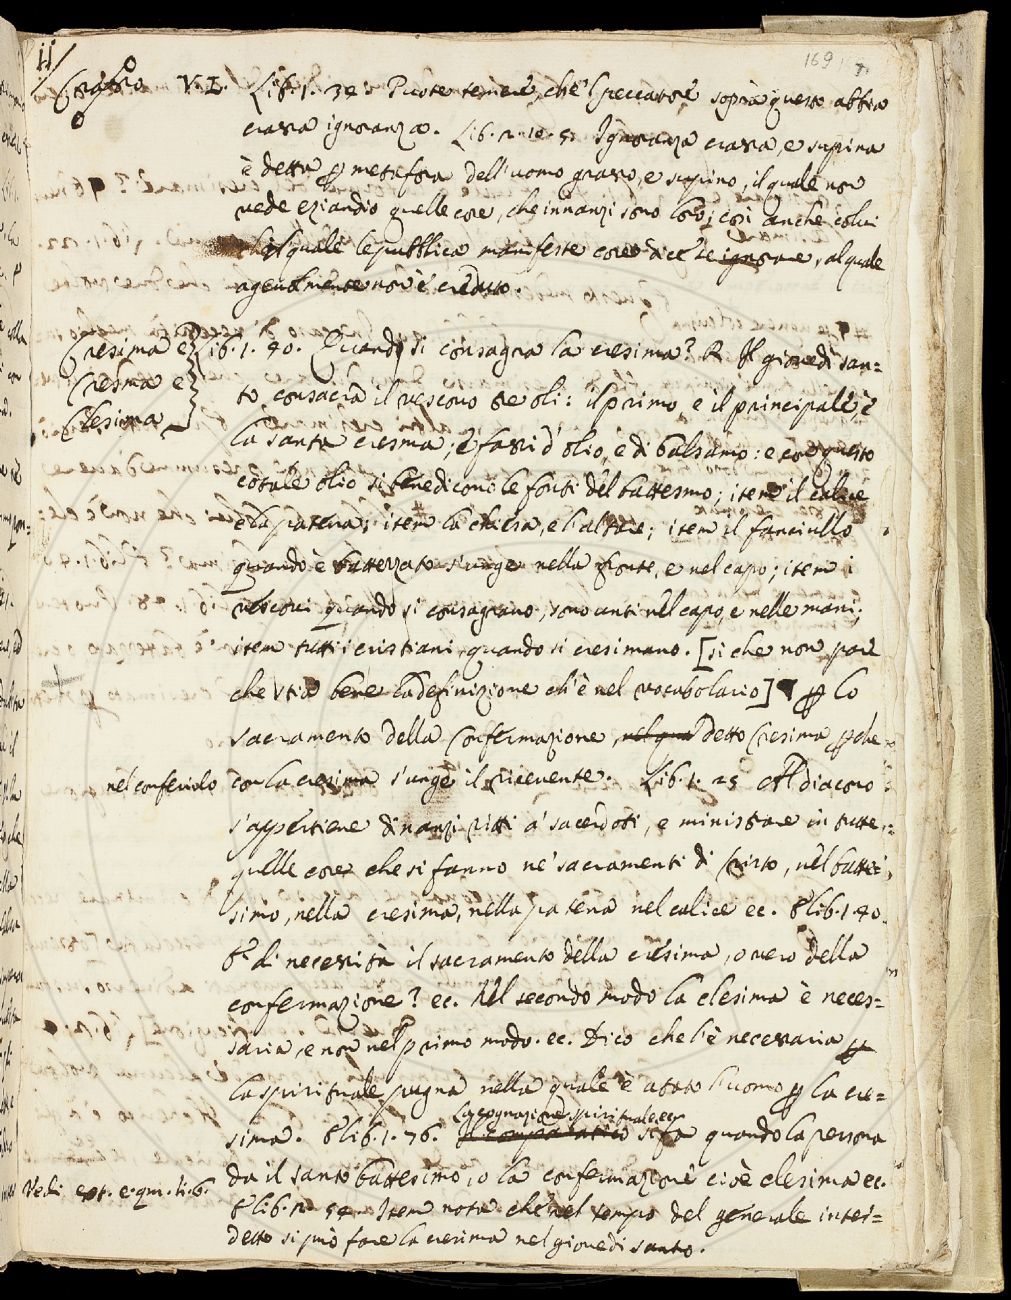 169
Crasso V. L. Lib. 1. 34. Puote temere, che 'l peccatore sopra questo abbia
crassa ignoranza. Lib. 2. 10. 5. Ignoranza crassa, e supina
è detta per metafora dell'uomo grasso, e supino, il quale non
vede eziandio quelle cose, che innanzi sono loro; così anche colui
il quale le pubblica manifeste cose dice se ignorare, al quale
agevolmente non è creduto.
Cresima e Lib. 1. 40. Quando si consagra la cresima? R. Il giovedì san=
Cresma e to consacra il vescovo tre oli: il primo e il principale è
Clesima la santa cresma; e fassi d'olio, e di balsamo: e con questo
cotale olio si benedicono le fonti del battesmo; item il calice
e la patena; item la chiesa, e l'altare; item il fanciullo
quando è battezzato s'unge nella fronte, e nel capo; item i
vescovi quando si consagrano, sono unti nel capo, e nelle mani;
item tutti i cristiani quando si cresimano. [si che non pare
che stia bene la definizione ch'è nel vocabolario] per lo
sacramento della Confermazione, nel qua detto Cresima perche
nel conferirlo con la cresima s'unge il ricevente. Lib. 1. 25 Al diacono
s'appertiene dinanzi ritti a' sacerdoti, e ministrare in tutte
quelle cose che si fanno ne' sacramenti di Cristo, nel batte=
simo, nella cresima, nella patena nel calice ec. E lib. 1. 40.
E' di necessità il sacramento della cresima, o vero della
confermazione? ec. Nel secondo modo la clesima è neces=
saria, e non nel primo modo. ec. Dico che l'è necessaria per
la spirituale pugna nella quale è atato l'uomo per la cre=
sima. E lib. 1. 76. La cognazione spirituale si fa quando la persona
da il santo battesimo, o la confermazione cioè clesima ec.
Vedi est. e. qm. li. 6. E lib. 2. 54. Item nota che nel tempo del generale inter=
detto si può fare la cresima nel giovedì santo.